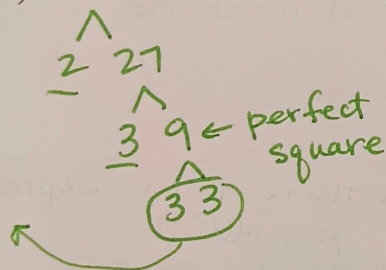 2 27
3 9 ← perfect
square
3 3